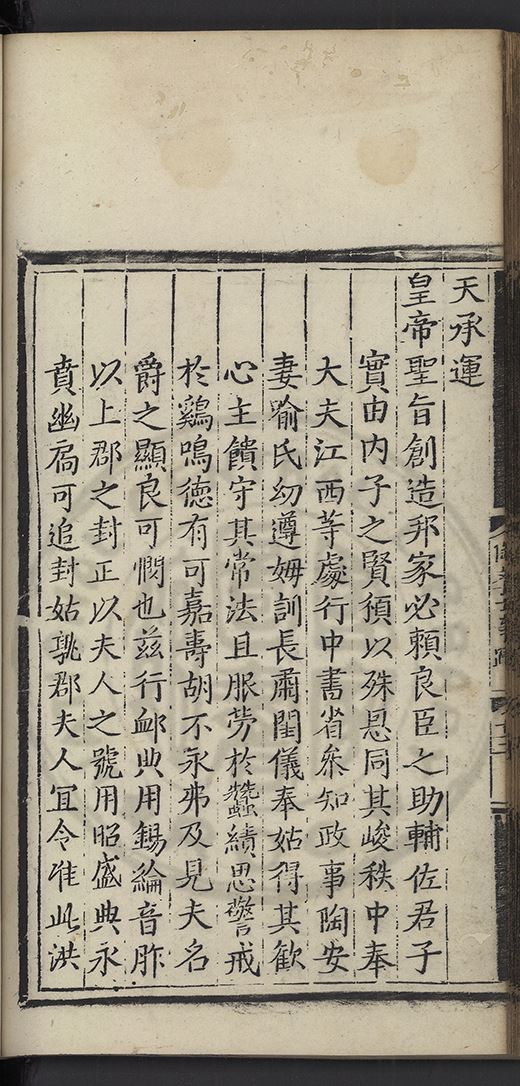 天承運
皇帝聖旨創造邦家必賴良臣之助輔佐君子
實由内子之賢須以殊恩同其峻秩中奉
大夫江西等處行中書省叅知政事陶安
妻喻氏幼遵姆訓長肅閨儀奉姑得其歡
心主饋守其常法且服勞於蠶績思警戒
於鷄鳴德有可嘉壽胡不永弗及見夫名
爵之顯良可憫也兹行䘏典用錫綸音胙
以上郡之封正以夫人之號用昭盛典永
賁幽扃可追封姑孰郡夫人宜令准此洪